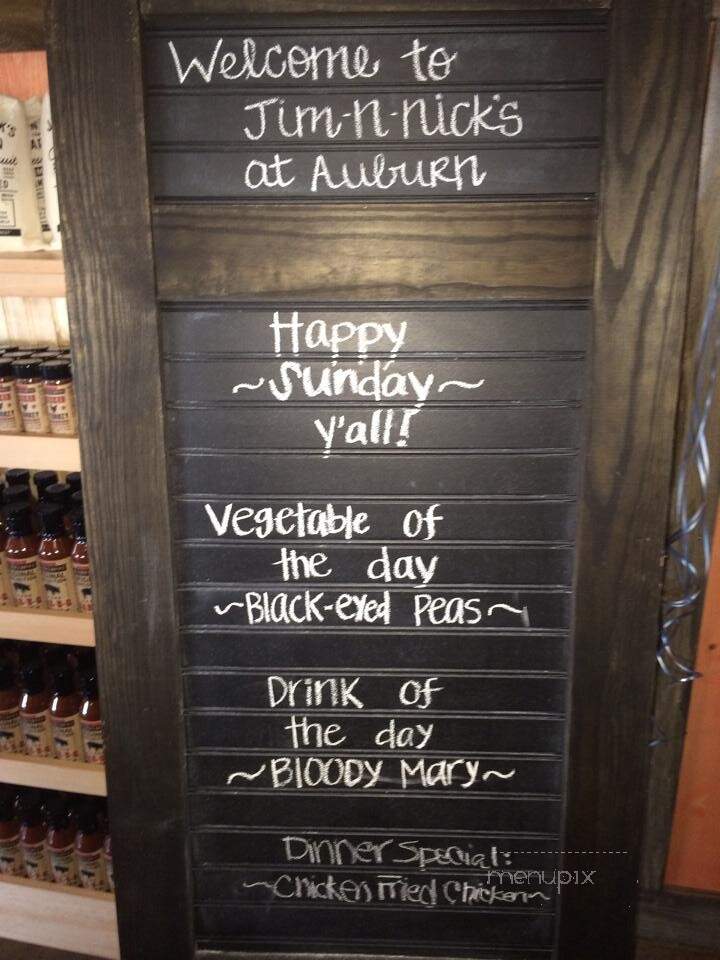 Welcome to
Jim-n-nick's
at Auburn
Happy
~Sunday~
y'all!
Vegetable of
the day
~Black-eyed Peas~
Drink of
the day
~BlOODY Mary~
Dinner Special:
~Chicken Fried Chicken~
menupix